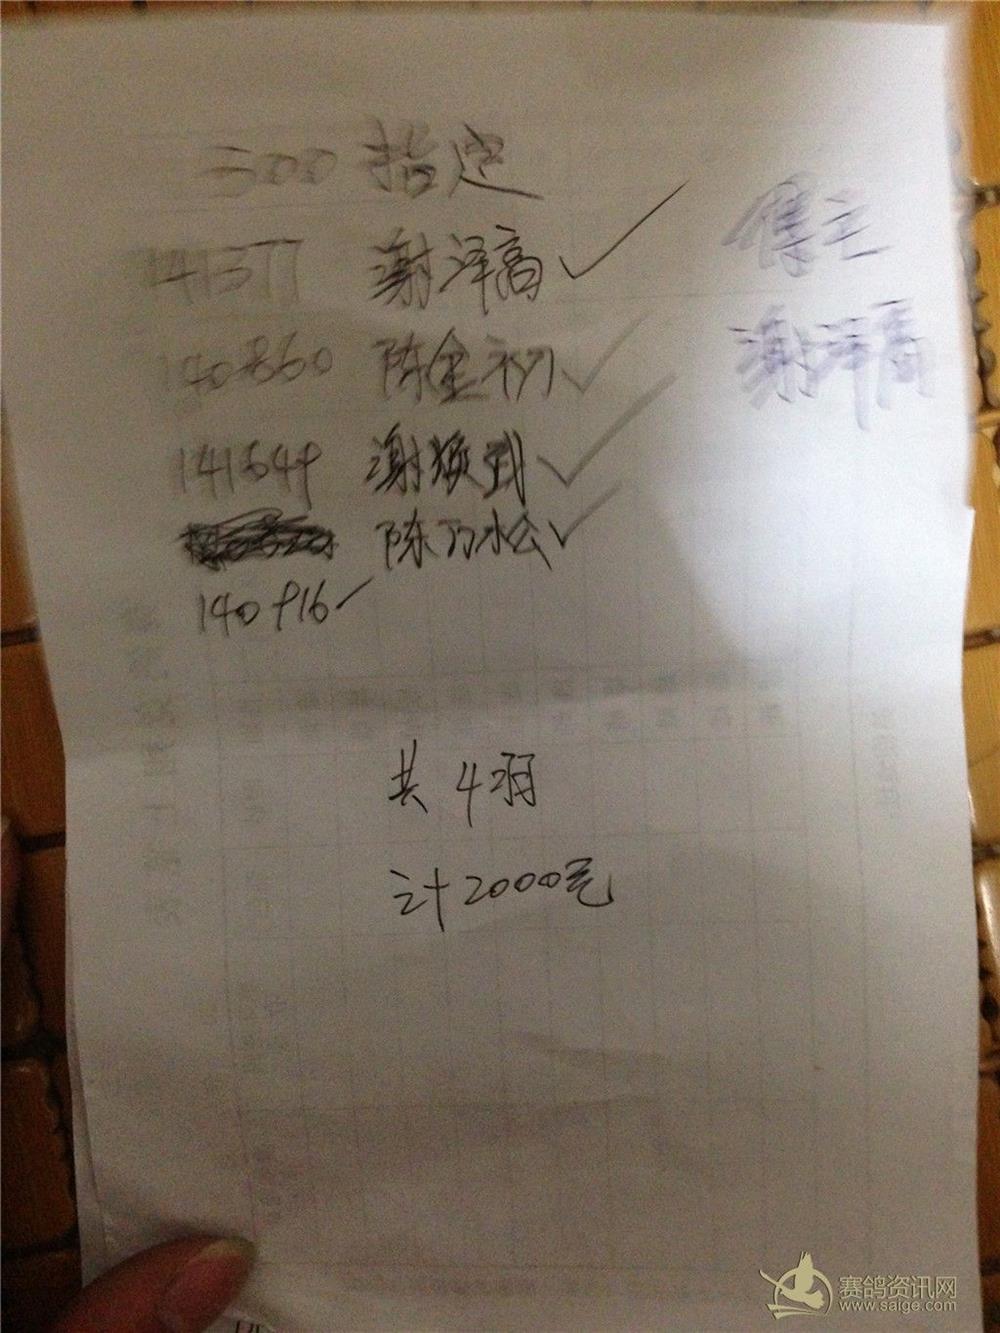 500 指定
141377 谢泽高 ✓
得主
谢泽高
140860 陈金初 ✓
141649 谢焕
陈乃松 ✓
140916
共4羽
计2000元
赛鸽资讯网
www.saige.com